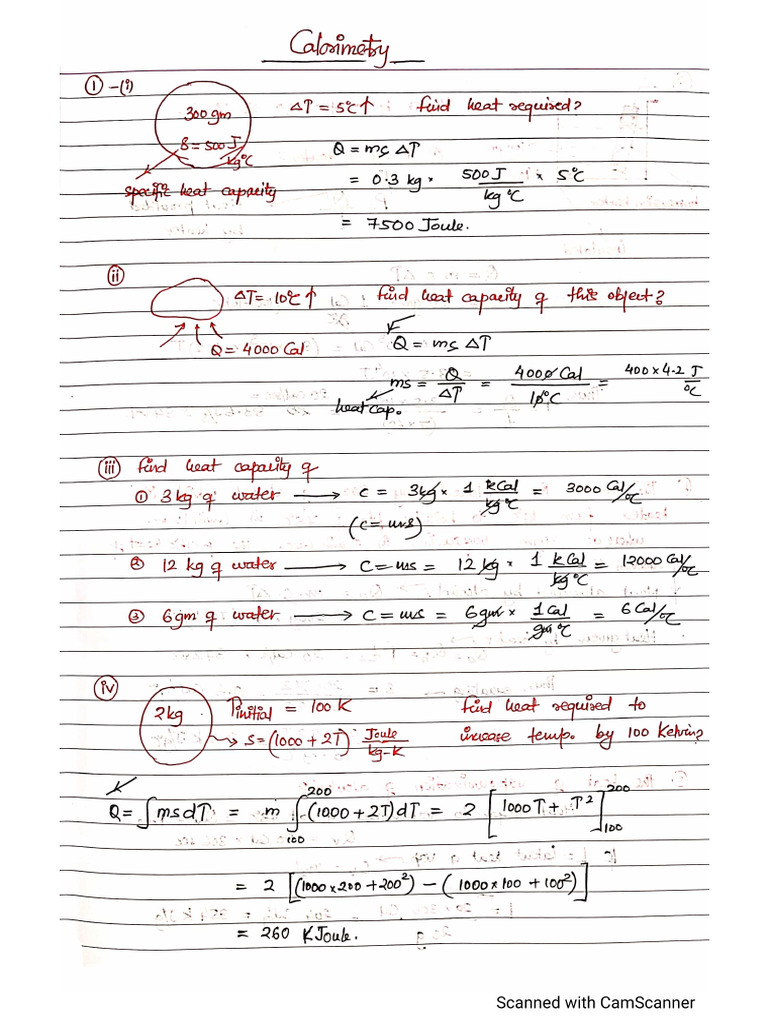 Calorimetry
① -(i)
300 gm
ΔT = 5°C ↑ find heat required?
S = 500 J/kg°C
Q = ms ΔT
specific heat capacity
= 0.3 kg × 500 J/kg °C × 5°C
= 7500 Joule.
ⅱ
ΔT = 10°C ↑ find heat capacity of this object?
Q = 4000 Cal
Q = ms ΔT
ms = Q/ΔT = 4000 Cal/10°C = 400 × 4.2 J/°C
heat cap.
ⅲ find heat capacity of
① 3 kg of water → C = 3kg × 1 kCal/kg°C = 3000 Cal/°C
(C = ms)
② 12 kg of water → C = ms = 12 kg × 1 kCal/kg°C = 12000 Cal/°C
③ 6 gm of water → C = ms = 6 gm × 1 Cal/gm °C = 6 Cal/°C
ⅳ
2 kg. Tinitial = 100 K find heat required to
S = (1000 + 2T) Joule/kg-K increase temp. by 100 Kelvin?
Q = ∫ msdT = m ∫₁₀₀²⁰⁰ (1000 + 2T) dT = 2 [1000 T + T²]₁₀₀²⁰⁰
= 2 [(1000 × 200 + 200²) – (1000 × 100 + 100²)]
= 260 K Joule.
Scanned with CamScanner